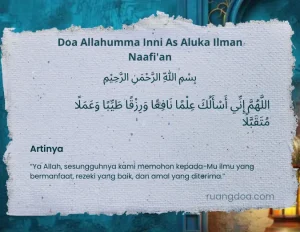 Doa Allahumma Inni As Aluka Ilman
Naafi'an
بِسْمِ اللّٰهِ الرَّحْمٰنِ الرَّحِيْمِ
اللَّهُمَّ إِنِّي أَسْأَلُكَ عِلْمًا نَافِعًا وَرِزْقًا طَيِّبًا وَعَمَلًا
مُتَقَبَّلًا
Artinya
“Ya Allah, sesungguhnya kami memohon kepada-Mu ilmu yang
bermanfaat, rezeki yang baik, dan amal yang diterima.”
ruangdoa.com